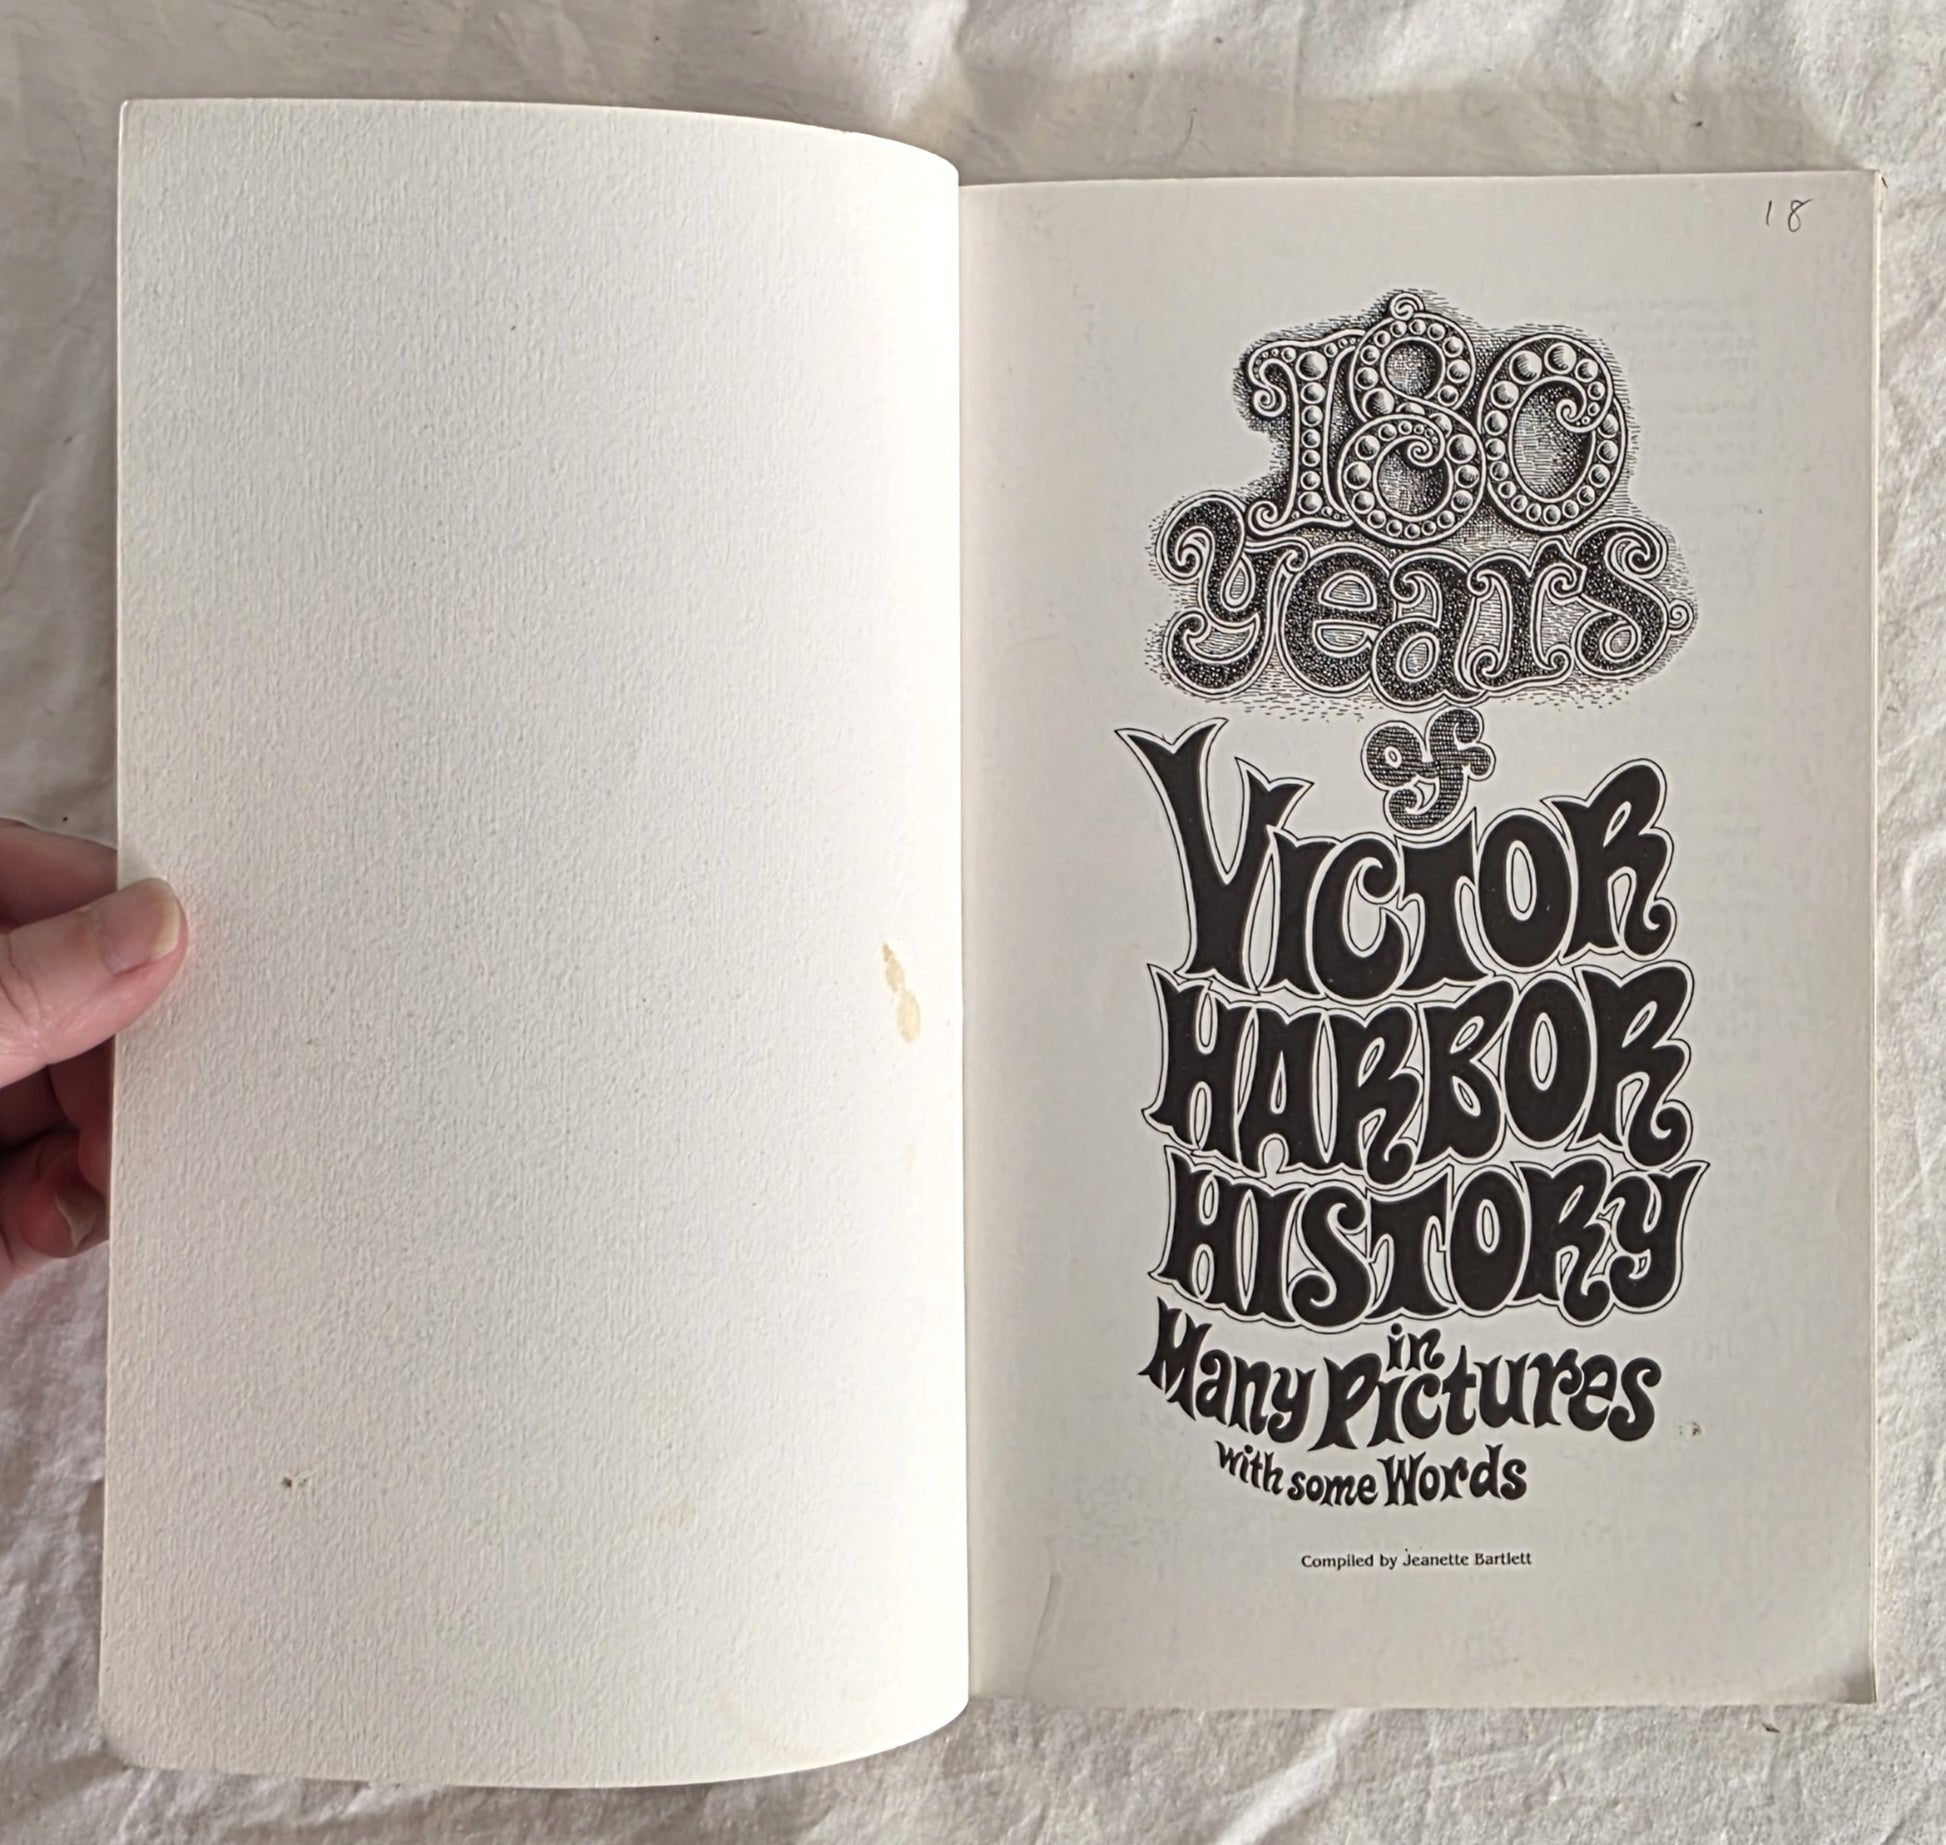 18
180
Years
of
VICTOR
HARBOR
HISTORY
in
Many Pictures
with some Words
Compiled by Jeanette Bartlett